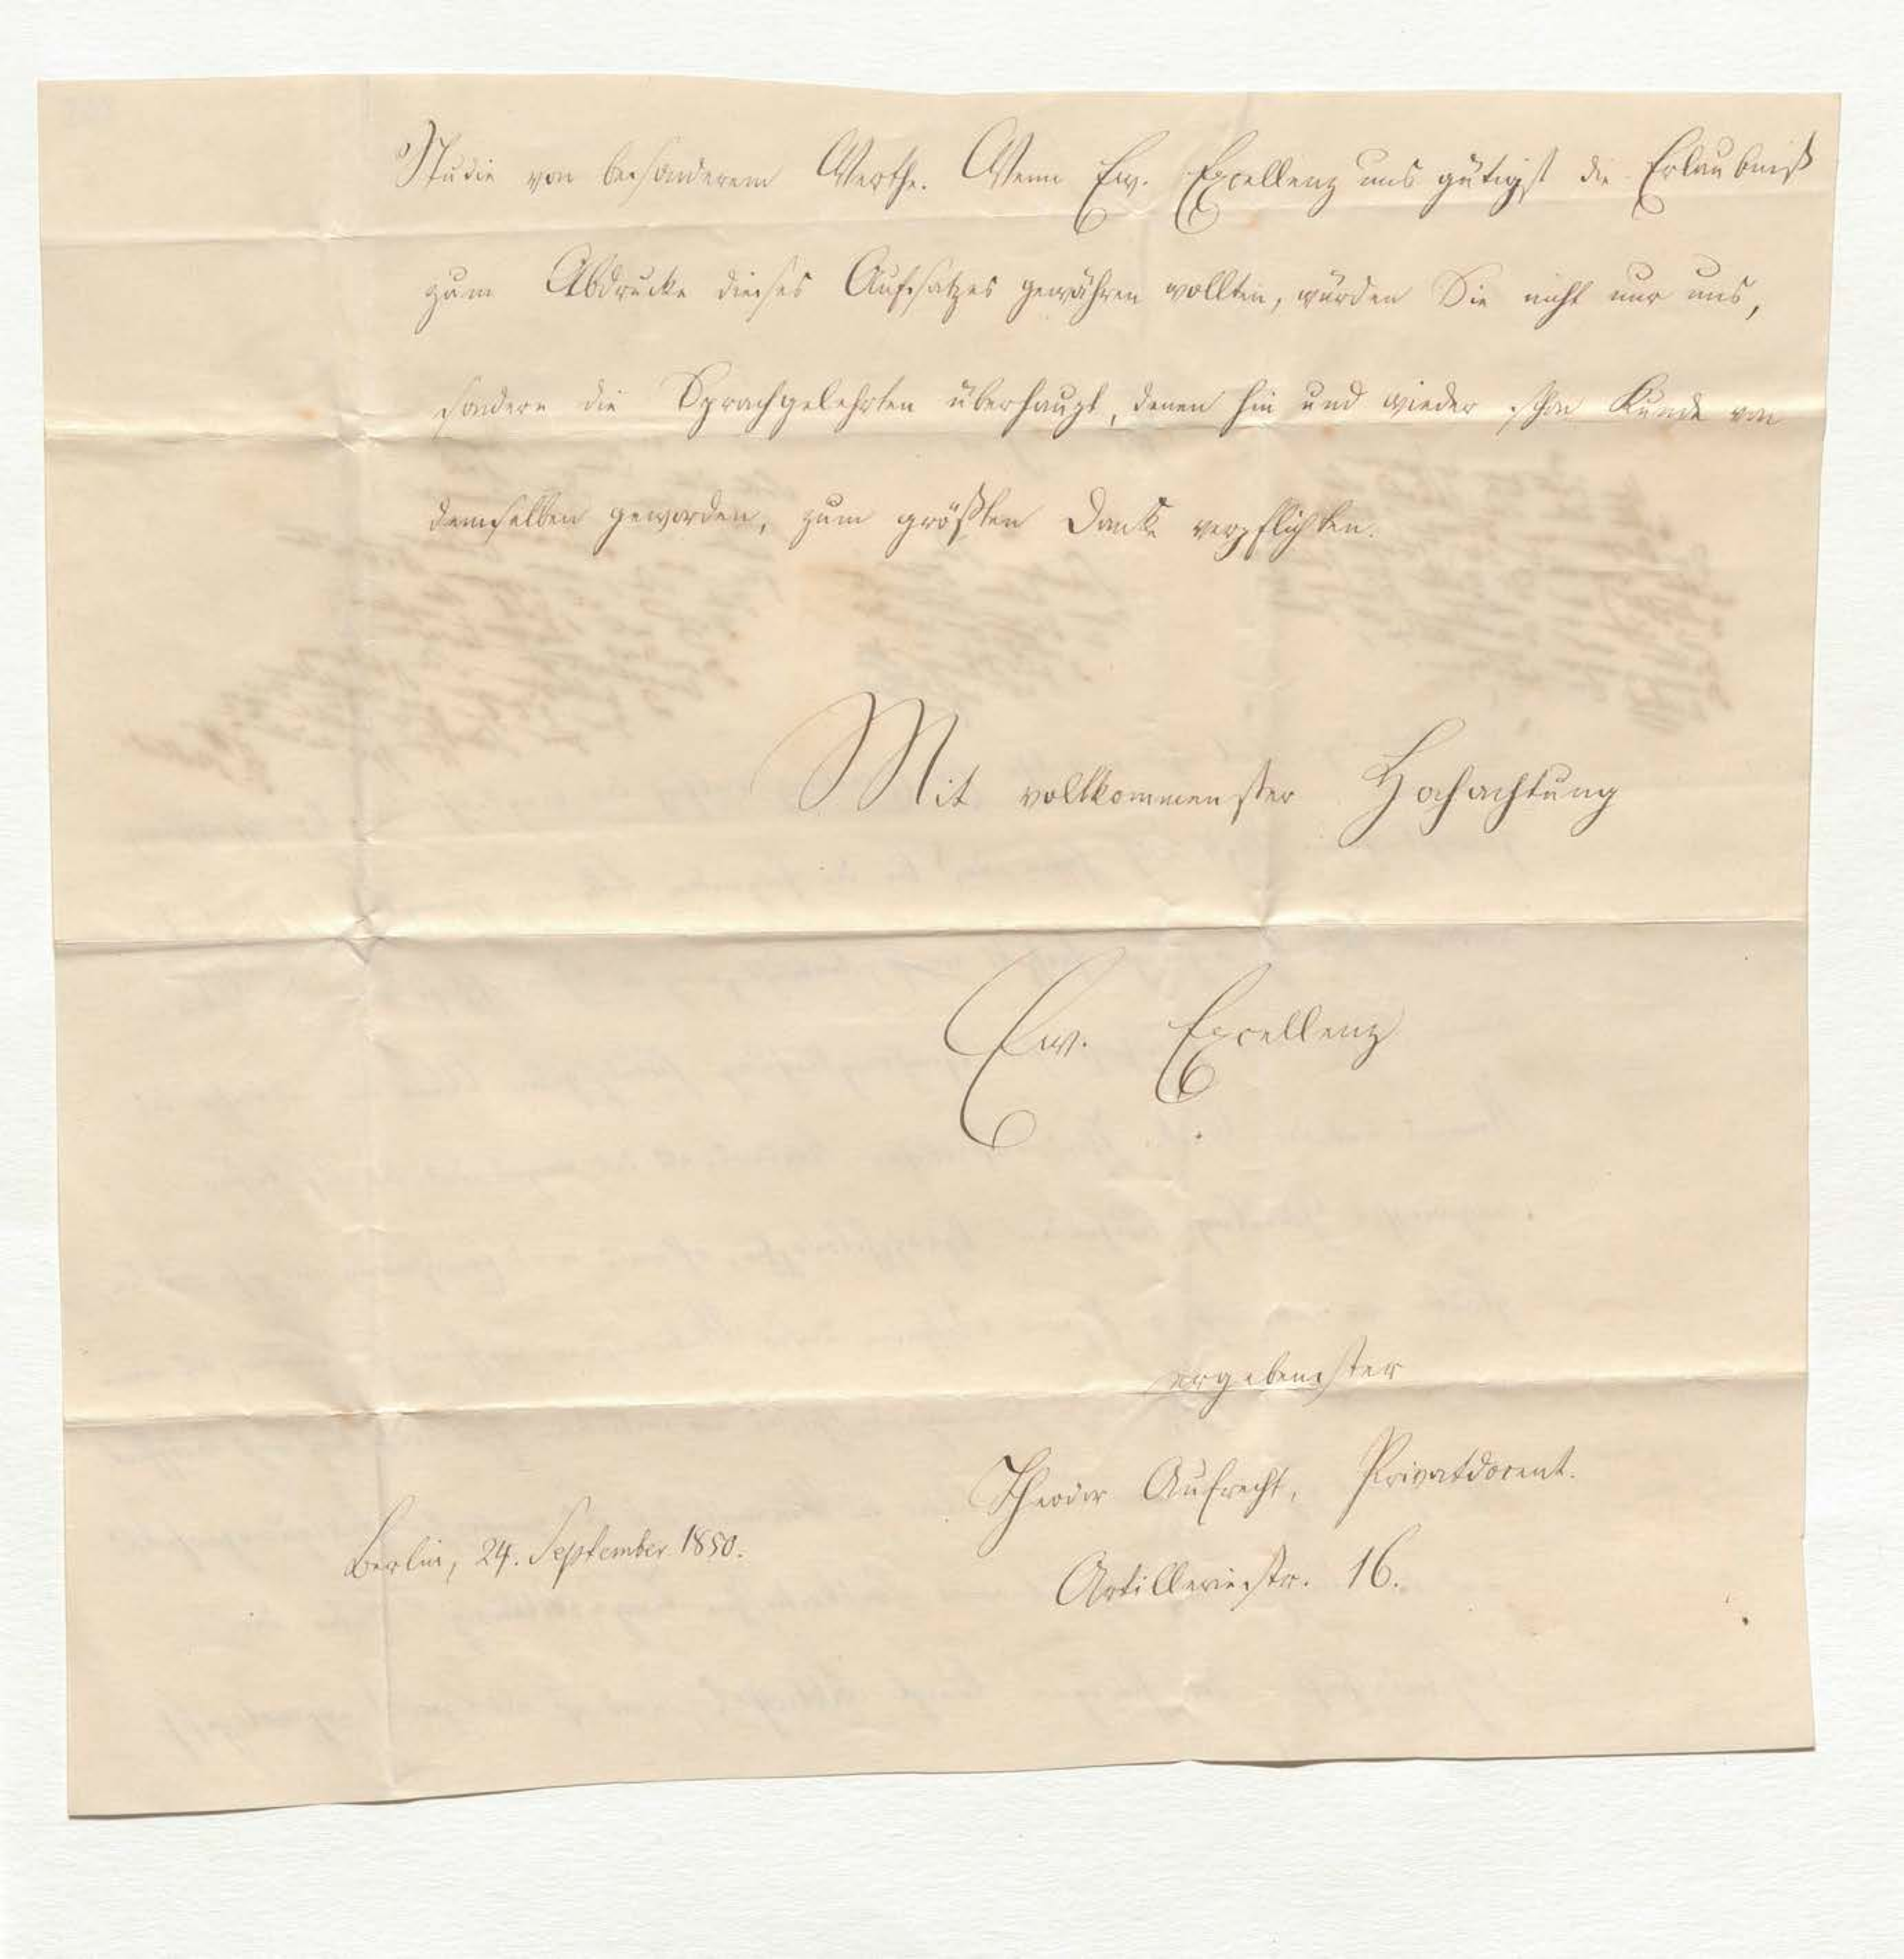 Studie von besonderem Werthe. Wenn Ew. Excellenz uns gütigst die Erlaubniß
zum Abdrucke dieses Aufsatzes gewähren wollten, würden Sie nicht nur uns,
sondern die Sprachgelehrten überhaupt, denen hin und wieder schon Kunde von
demselben geworden, zum größten Danke verpflichten.
Mit vollkommenster Hochachtung
Ew. Excellenz
ergebenster
Theodor Aufrecht, Privatdocent.
Berlin, 24. September 1850.
Artilleriestr. 16.